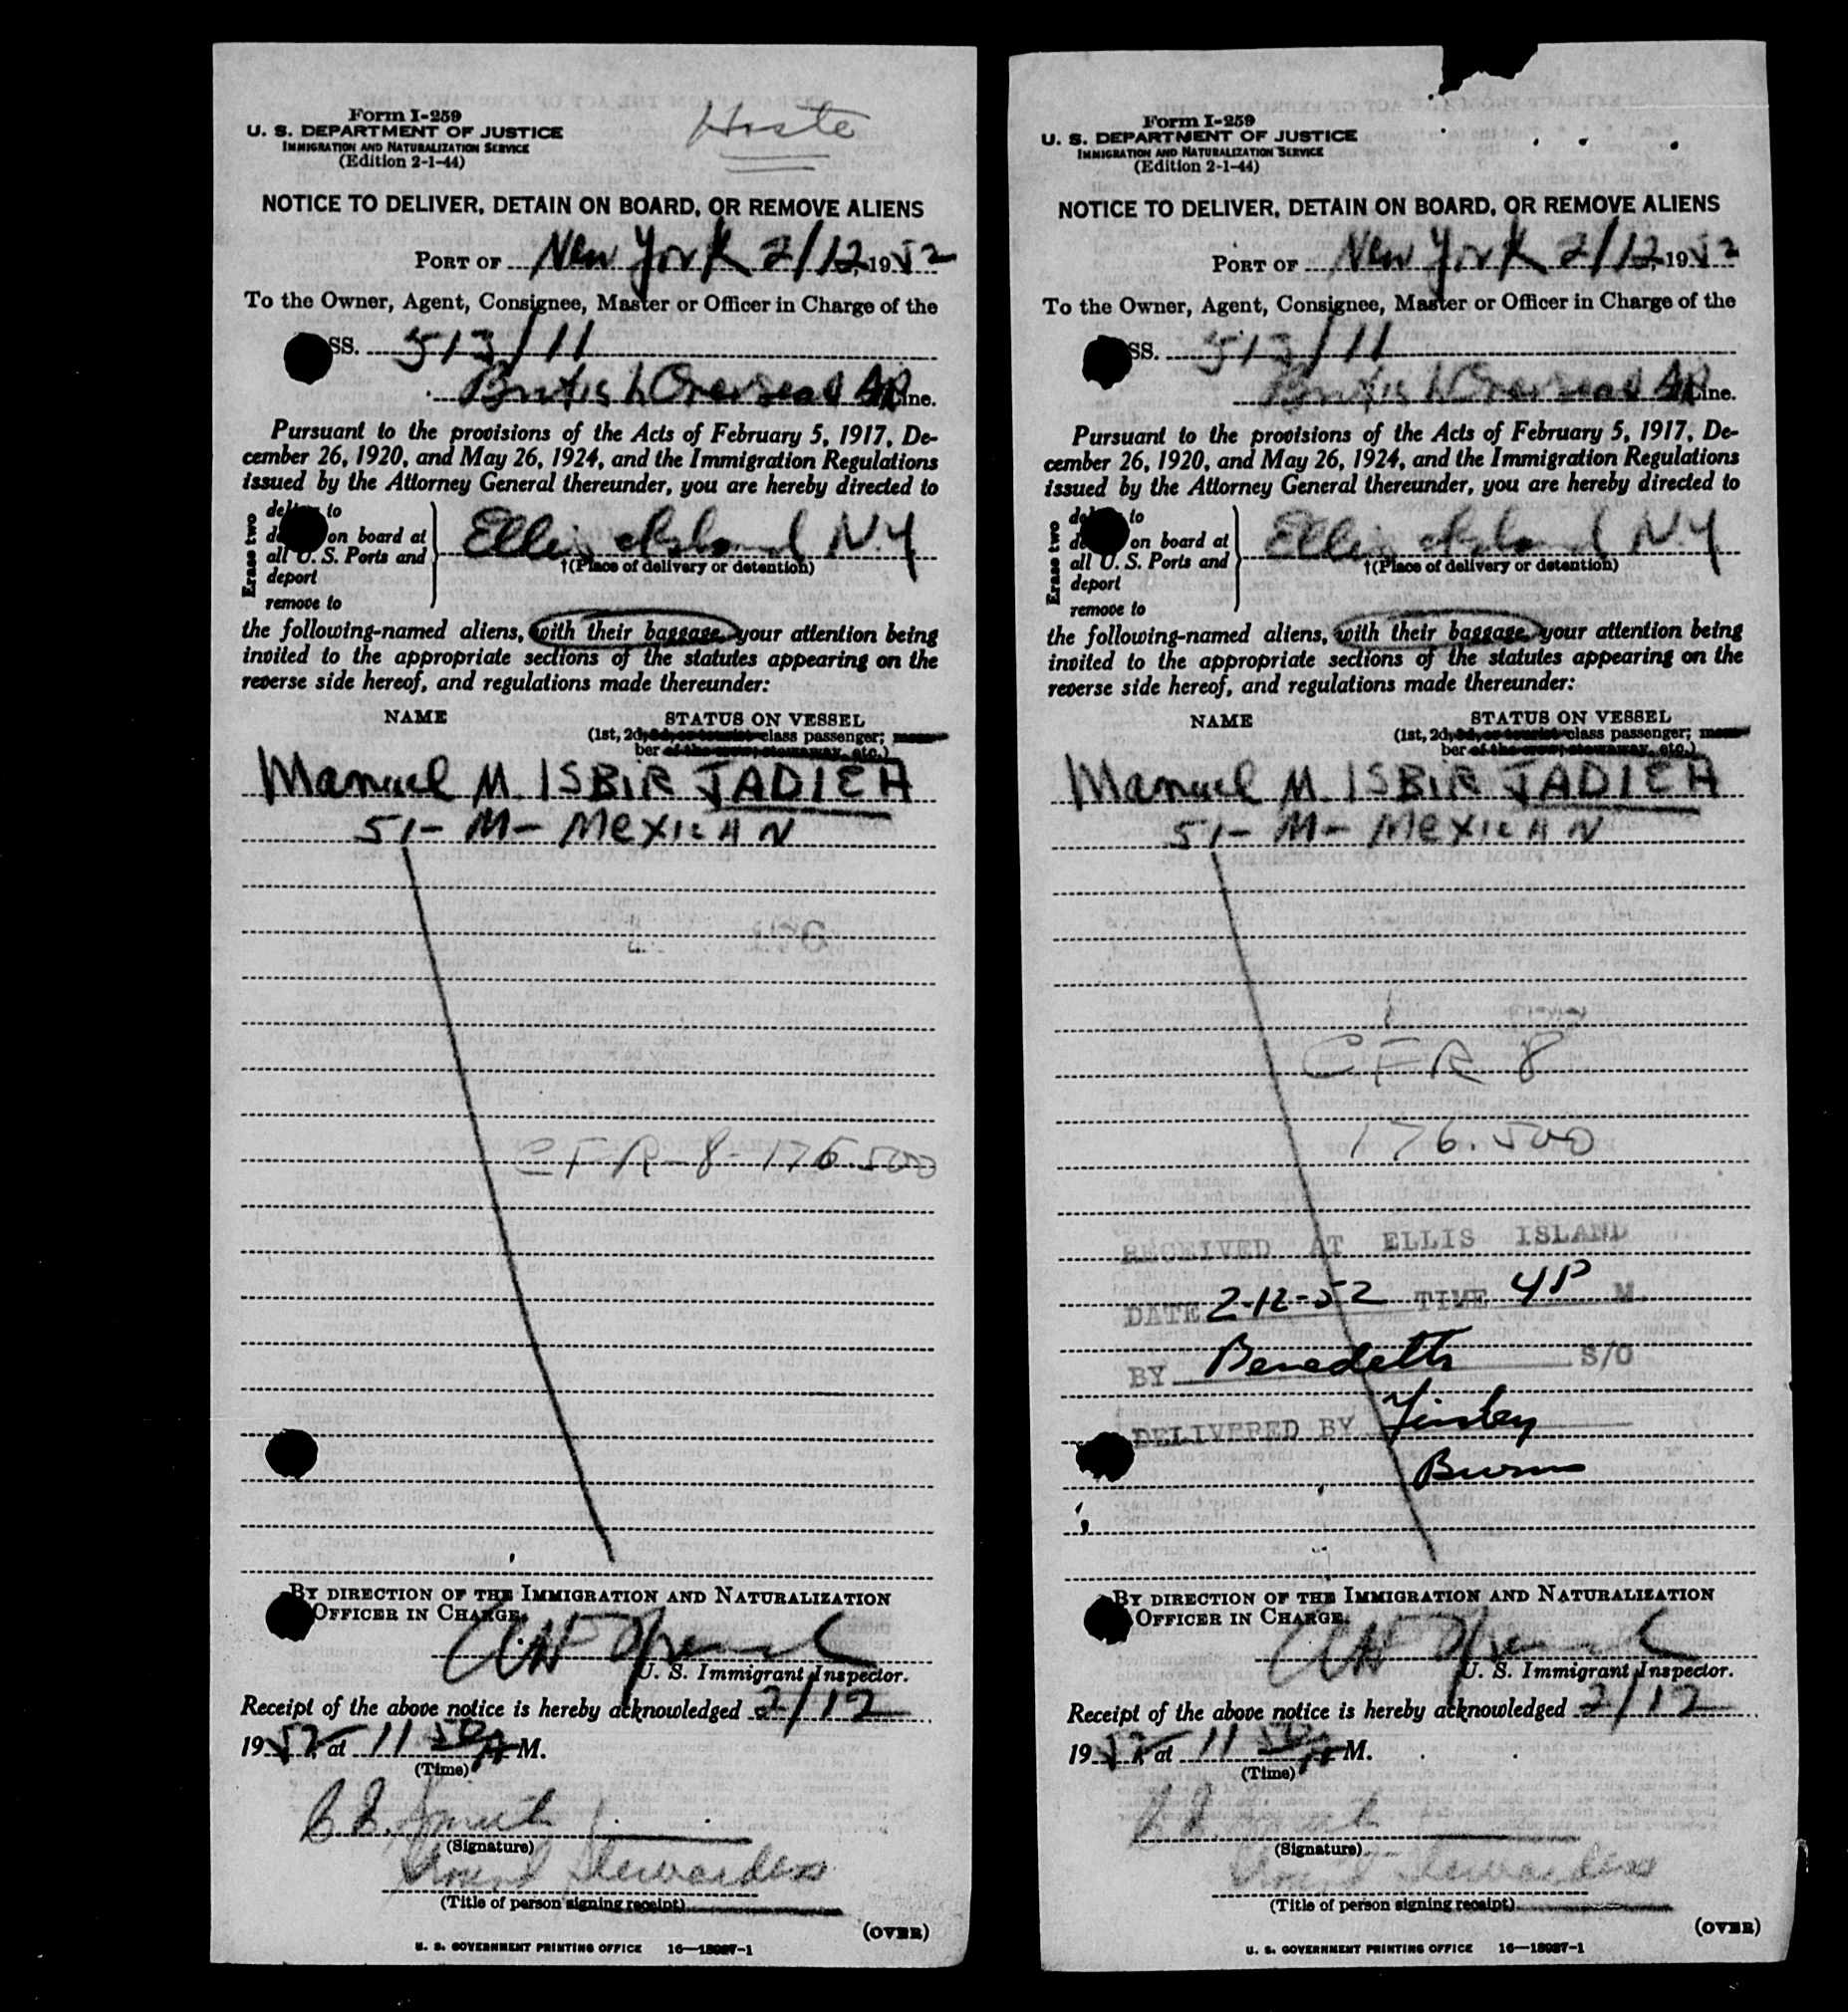 Form I-259
U. S. DEPARTMENT OF JUSTICE
IMMIGRATION AND NATURALIZATION SERVICE
(Edition 2-1-44)
NOTICE TO DELIVER, DETAIN ON BOARD, OR REMOVE ALIENS
PORT OF New York 2/12, 1952
To the Owner, Agent, Consignee, Master or Officer in Charge of the
SS. 513/11
British Overseas Line.
Pursuant to the provisions of the Acts of February 5, 1917, De-
cember 26, 1920, and May 26, 1924, and the Immigration Regulations
issued by the Attorney General thereunder, you are hereby directed to
Erase two
to
on board at
all U. S. Ports and
deport
remove to
Ellis Island N.Y
†(Place of delivery or detention)
the following-named aliens, with their baggage, your attention being
invited to the appropriate sections of the statutes appearing on the
reverse side hereof, and regulations made thereunder:
NAME STATUS ON VESSEL
(1st, 2d, 3d, or tourist class passenger; mem-
ber of the crew, stowaway, etc.)
Manuel M. ISBIR JADIEH
51- M- MEXICAN
CFR-8-176.500
BY DIRECTION OF THE IMMIGRATION AND NATURALIZATION
OFFICER IN CHARGE.
U. S. Immigrant Inspector.
Receipt of the above notice is hereby acknowledged 2/12
1952, at 11 50 A M.
(Time)
(Signature)
Ground Stewardess
(Title of person signing receipt)
(OVER)
U. S. GOVERNMENT PRINTING OFFICE 16—18087-1
Form I-259
U. S. DEPARTMENT OF JUSTICE
IMMIGRATION AND NATURALIZATION SERVICE
(Edition 2-1-44)
NOTICE TO DELIVER, DETAIN ON BOARD, OR REMOVE ALIENS
PORT OF New York 2/12, 1952
To the Owner, Agent, Consignee, Master or Officer in Charge of the
SS. 513/11
British Overseas Line.
Pursuant to the provisions of the Acts of February 5, 1917, De-
cember 26, 1920, and May 26, 1924, and the Immigration Regulations
issued by the Attorney General thereunder, you are hereby directed to
Erase two
to
on board at
all U. S. Ports and
deport
remove to
Ellis Island N.Y
†(Place of delivery or detention)
the following-named aliens, with their baggage, your attention being
invited to the appropriate sections of the statutes appearing on the
reverse side hereof, and regulations made thereunder:
NAME STATUS ON VESSEL
(1st, 2d, 3d, or tourist class passenger; mem-
ber of the crew, stowaway, etc.)
Manuel M. ISBIR JADIEH
51- M- MEXICAN
CFR 8
176.500
RECEIVED AT ELLIS ISLAND
DATE 2-12-52 TIME 4P M.
BY Benedetti S/O
DELIVERED BY
BY DIRECTION OF THE IMMIGRATION AND NATURALIZATION
OFFICER IN CHARGE.
U. S. Immigrant Inspector.
Receipt of the above notice is hereby acknowledged 2/12
1952, at 11 50 A M.
(Time)
(Signature)
Ground Stewardess
(Title of person signing receipt)
(OVER)
U. S. GOVERNMENT PRINTING OFFICE 16—18087-1